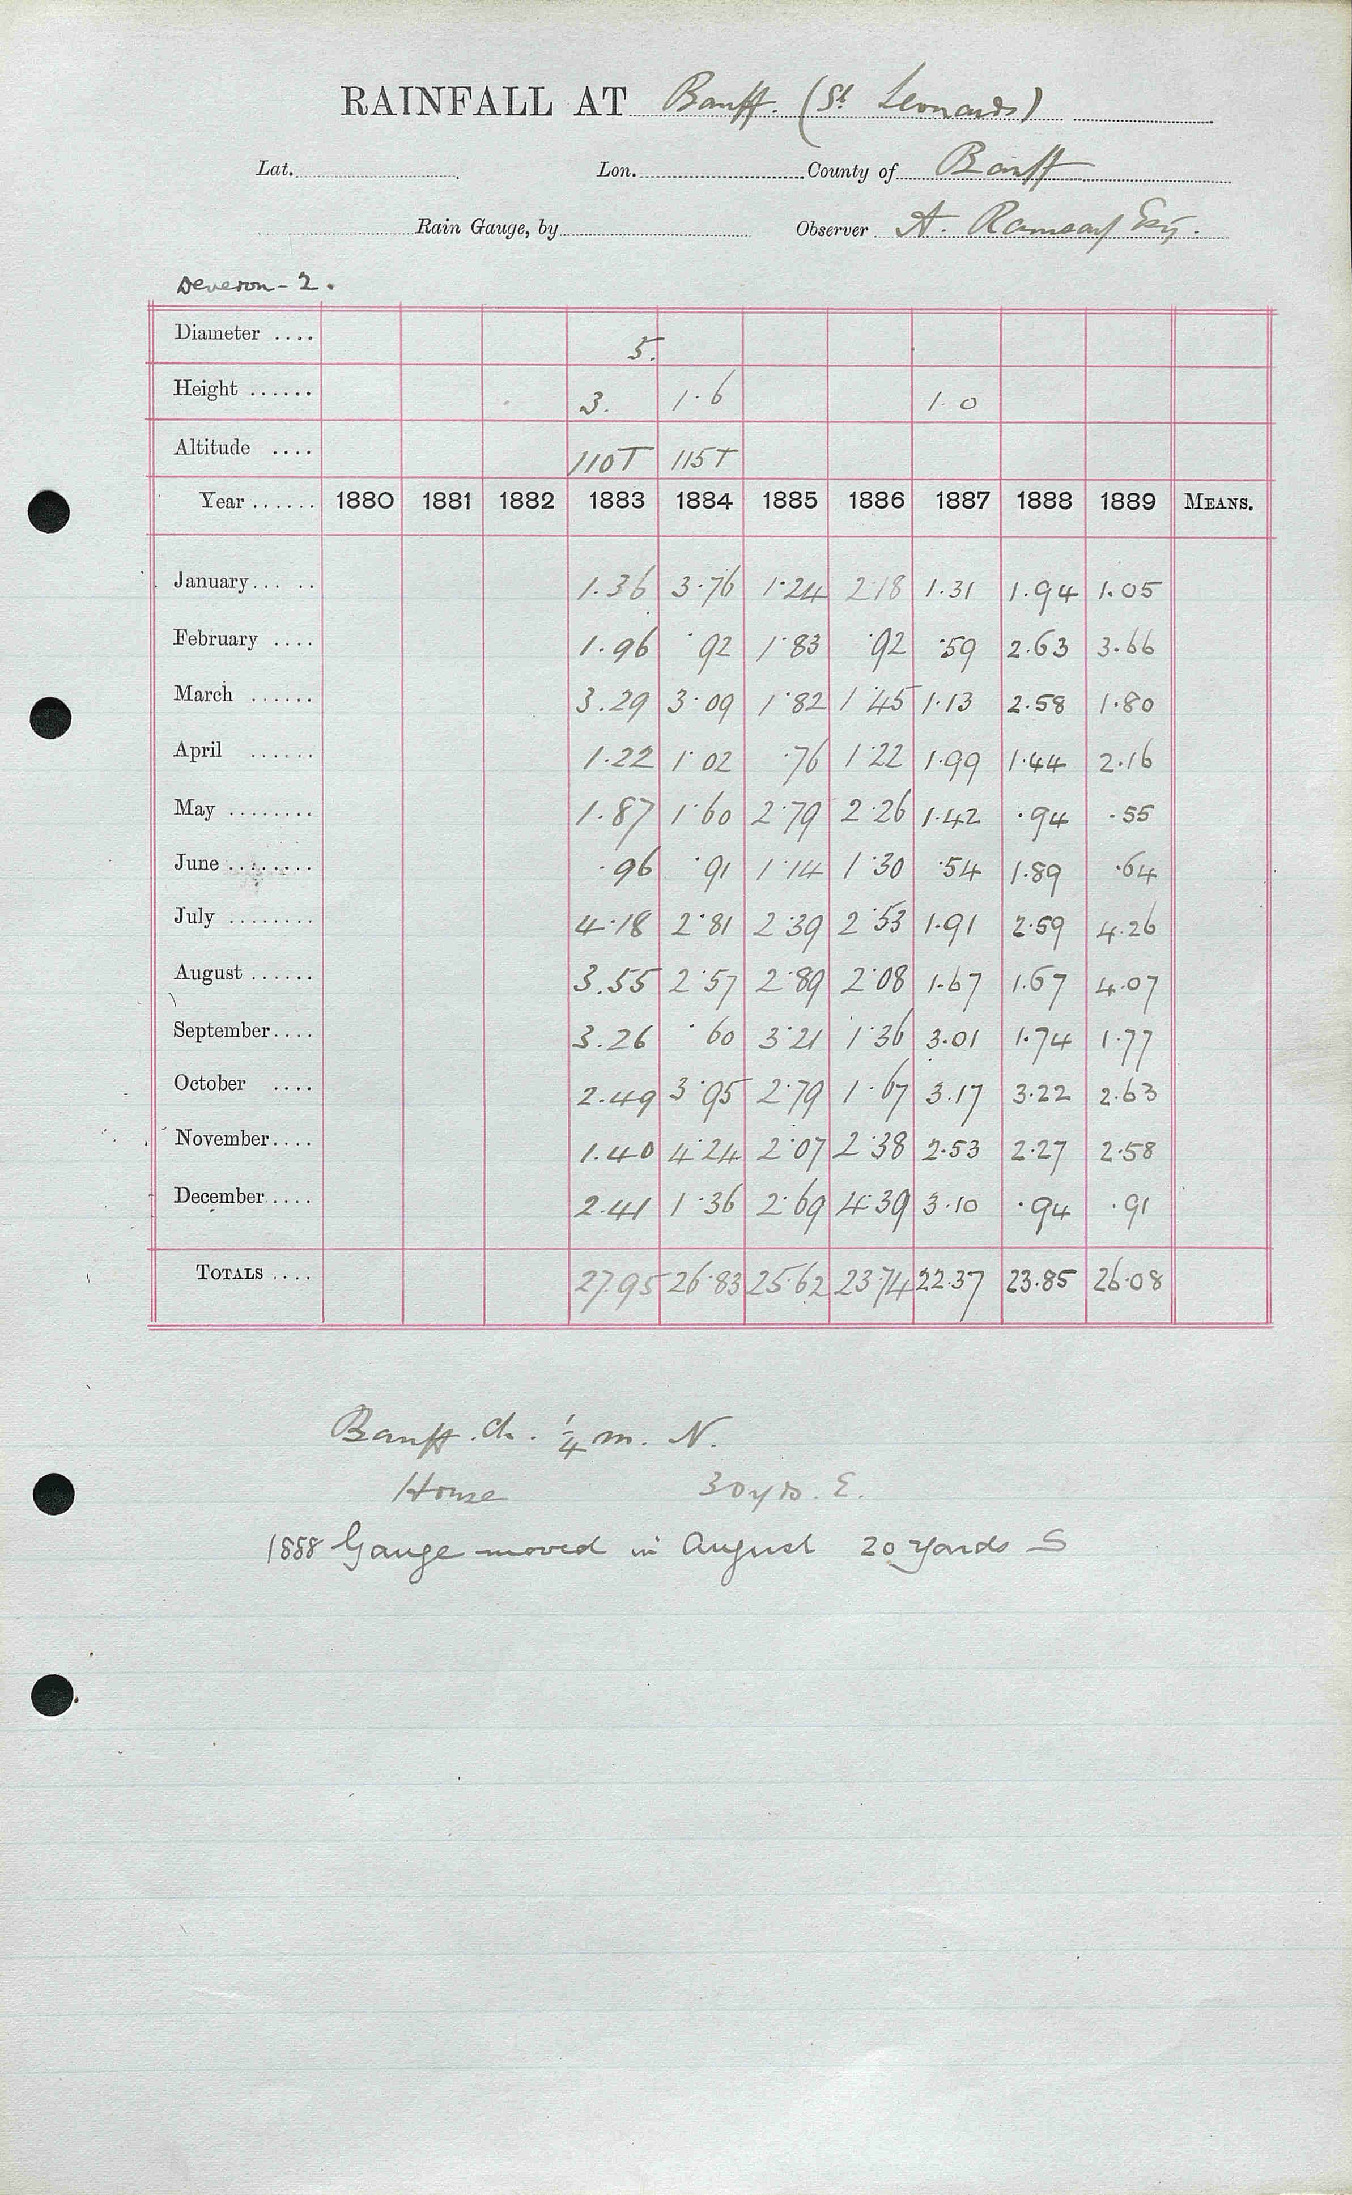 RAINFALL AT Banff. (St Leonards)
Lat. Lon. County of Banff
Rain Gauge, by Observer A. Ramsay Esq.
Deveron - 2.
Diameter .... 5.
Height ...... 3. 1.6 1.0
Altitude .... 110T 115T
Year ...... 1880 1881 1882 1883 1884 1885 1886 1887 1888 1889 MEANS.
January... .. 1.36 3.76 1.24 2.18 1.31 1.94 1.05
February .... 1.96 .92 1.83 .92 .59 2.63 3.66
March ...... 3.29 3.09 1.82 1.45 1.13 2.58 1.80
April ...... 1.22 1.02 .76 1.22 1.99 1.44 2.16
May ........ 1.87 1.60 2.79 2.26 1.42 .94 .55
June ........ .96 .91 1.14 1.30 .54 1.89 .64
July ........ 4.18 2.81 2.39 2.53 1.91 2.59 4.26
August ...... 3.55 2.57 2.89 2.08 1.67 1.67 4.07
September.... 3.26 .60 3.21 1.36 3.01 1.74 1.77
October .... 2.49 3.95 2.79 1.67 3.17 3.22 2.63
November.... 1.40 4.24 2.07 2.38 2.53 2.27 2.58
December .... 2.41 1.36 2.69 4.39 3.10 .94 .91
TOTALS .... 27.95 26.83 25.62 23.74 22.37 23.85 26.08
Banff. ch. 1/4 m. N.
House 30 yds. E.
1888 Gauge moved in August 20 yards S